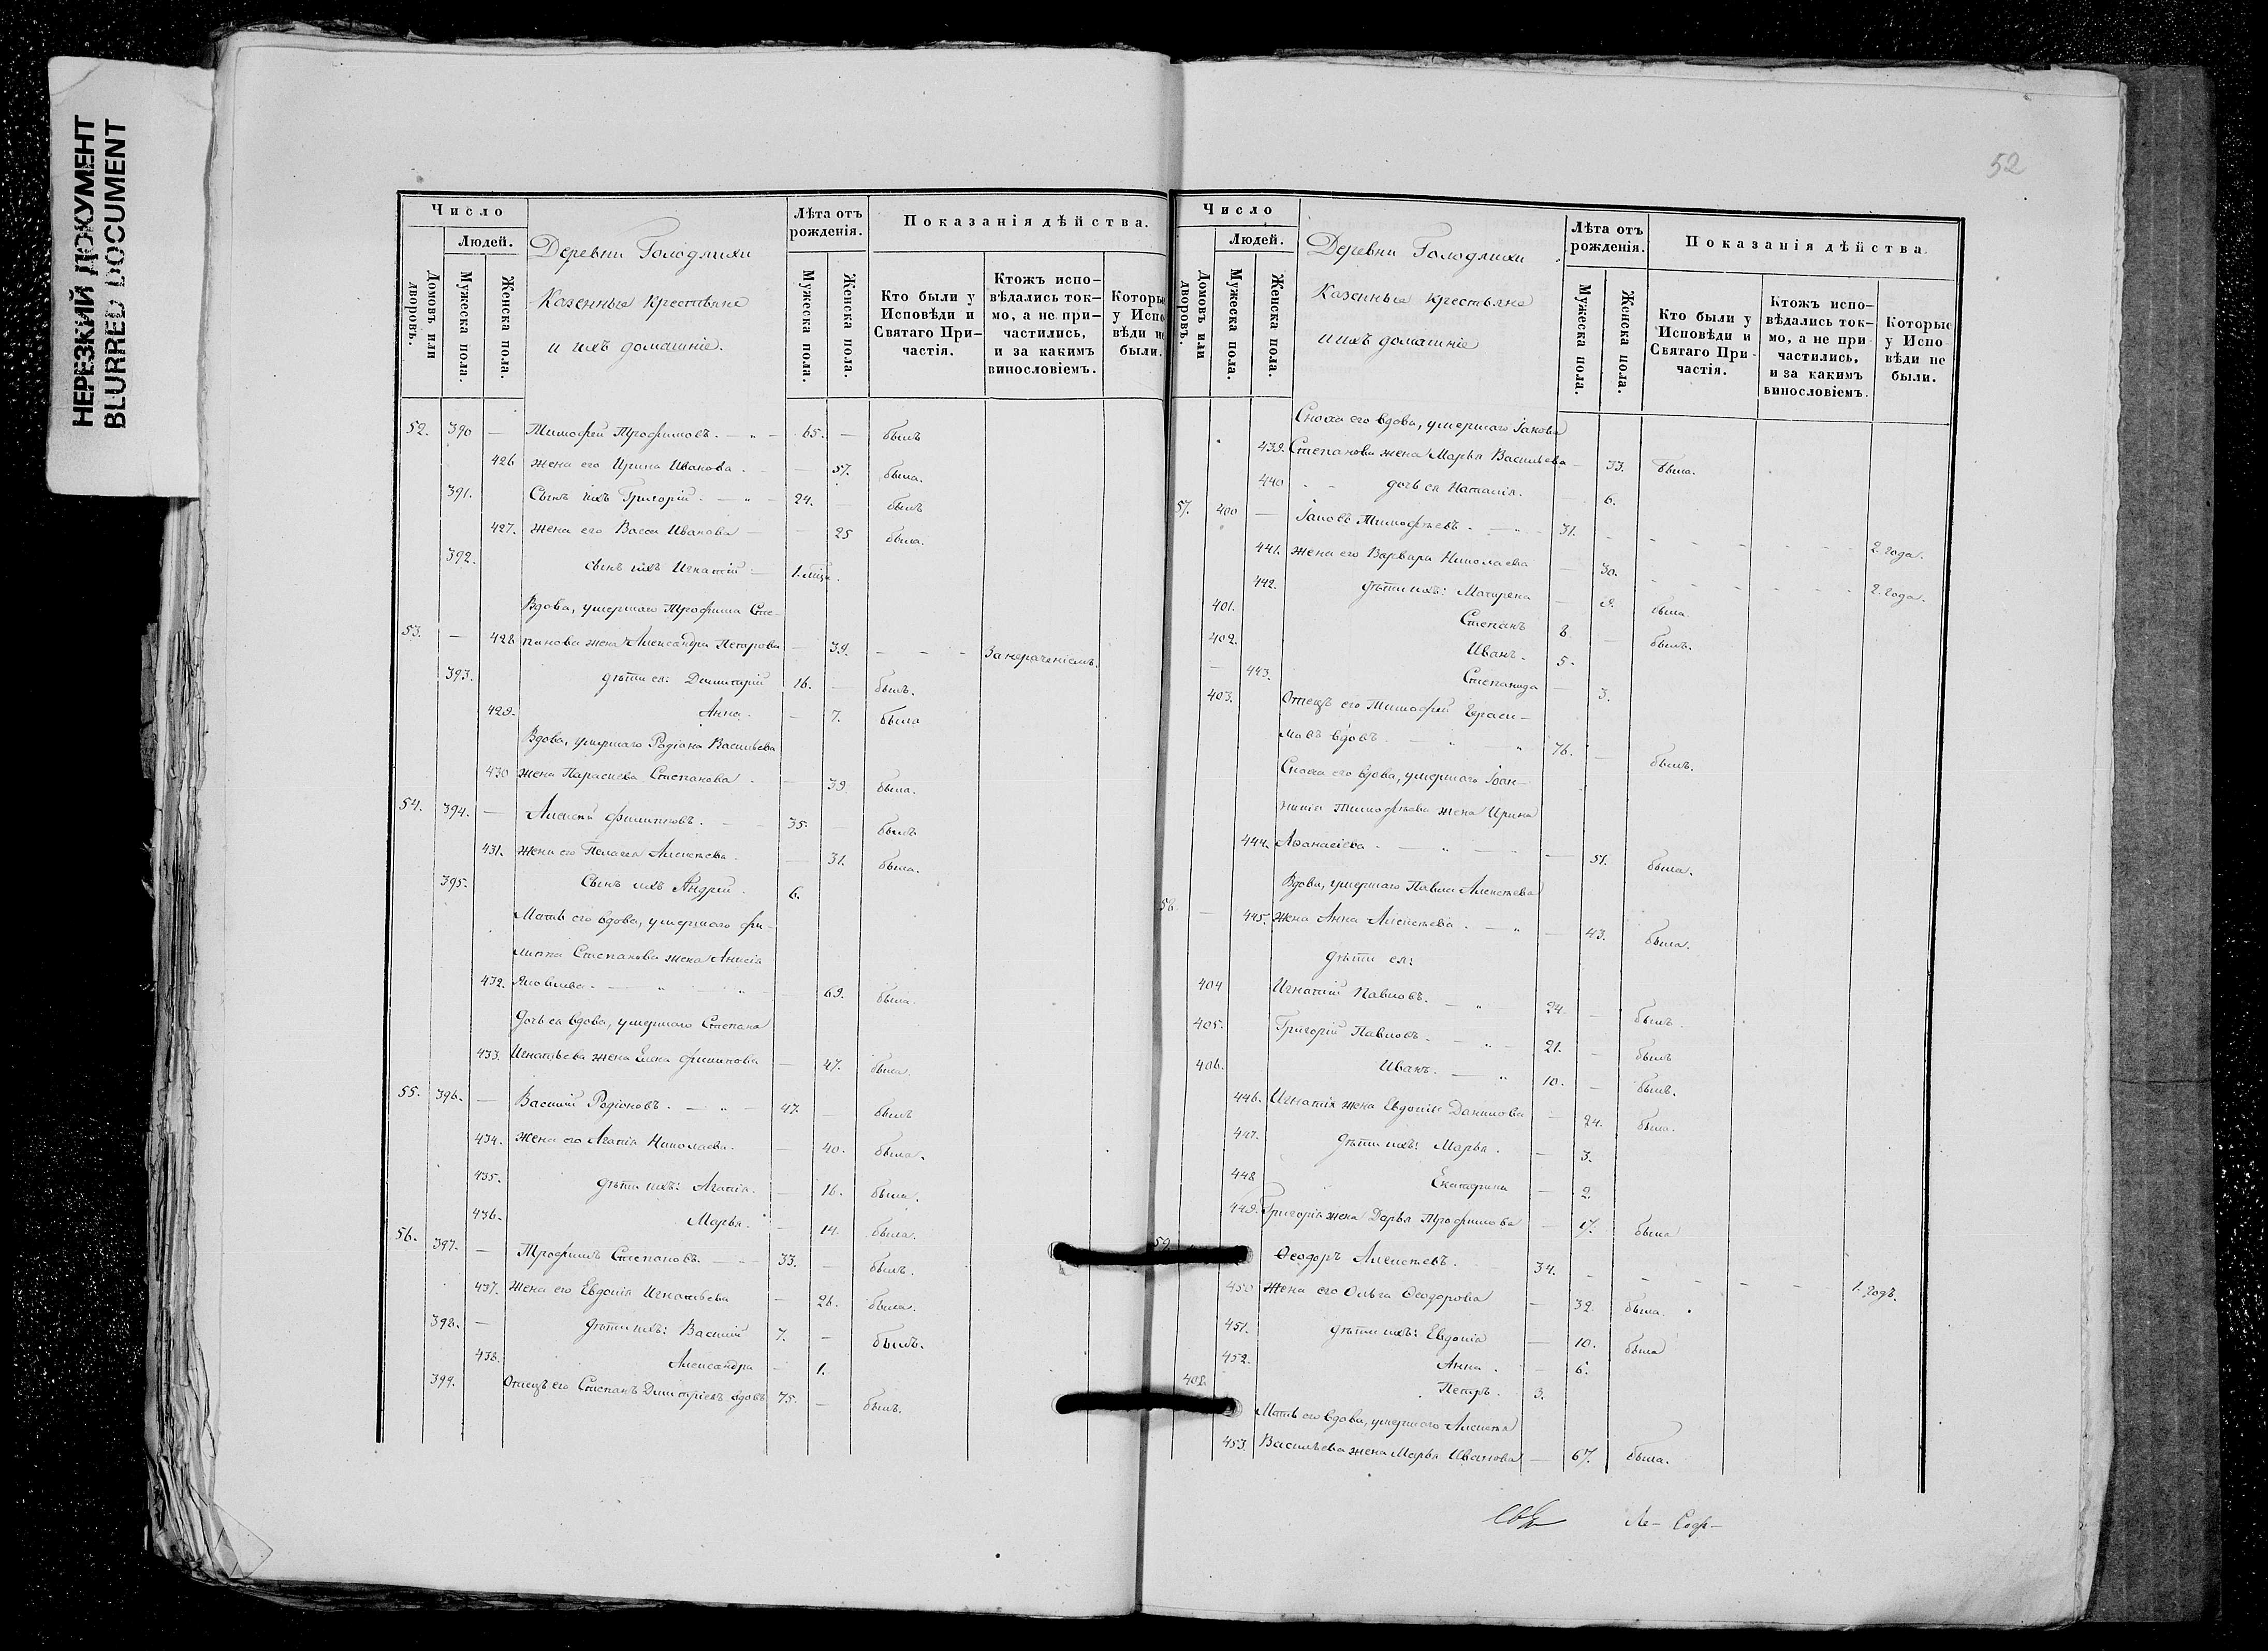 НЕРЕЗКИЙ ДОКУМЕНТ
BLURRED DOCUMENT
Число
Людей.
Домовъ или дворовъ.
Мужеска пола.
Женска пола.
Деревни Голодлихи
Казенные крестьяне
и ихъ домашніе.
Лѣта отъ рожденія.
Мужеска пола.
Женска пола.
Показанія дѣйства.
Кто были у Исповѣди и Святаго При-частія.
Ктожъ испо-вѣдались ток-мо, а не при-частились, и за какимъ винословіемъ.
Которые у Испо вѣди не были.
52. 390 — Тимофей Трофимовъ. — „ — 65. — былъ
426 жена его Ирина Иванова. — 57. была.
391. Сынъ ихъ Григорій. — „ — 24. — былъ
427. жена его Васса Иванова — — 25 была.
392. сынъ ихъ Игнатій — 1. мѣся.
Вдова, умершаго Трофима Сте-
53. — 428 панова жена Александра Петрова — 39. - - - За нераченіемъ.
393. дѣти ея: Димитрій 16. — былъ.
429. Анна. — 7. была
Вдова, умершаго Родіона Васильева
430 жена Параскева Степанова. — 39 была.
54. 394. — Алексѣй Филипповъ. — 35. — былъ
431. жена его Пелагея Алексѣева. — 31. была.
395. Сынъ ихъ Андрей. 6.
Мать его вдова, умершаго Фи-
липпа Степанова жена Анисія
432. Яковлева. — „ — „ — 69. была.
Дочь ея вдова, умершаго Степана
433. Игнатьева жена Елена Филипова — 47. была.
55. 396. — Василій Родіоновъ. — „ — 47. — былъ
434. жена его Агапія Николаева. — 40. была.
435. дѣти ихъ: Агапія. — 16. была.
436. Марья. — 14. была.
56. 397. — Трофимъ Степановъ. — 33. — былъ.
437. жена его Евдокія Игнатьева — 26. была.
398. — дѣти ихъ: Василій 7. — былъ.
438. Александра — 1.
399. Отецъ его Степанъ Димитріевъ вдовъ 75. — былъ.
52
Число
Людей.
Домовъ или дворовъ.
Мужеска пола.
Женска пола.
Деревни Голодлихи
Казенные крестьяне
и ихъ домашніе
Лѣта отъ рожденія.
Мужеска пола.
Женска пола.
Показанія дѣйства.
Кто были у Исповѣди и Святаго При-частія.
Ктожъ испо-вѣдались ток-мо, а не при частились, и за какимъ винословіемъ.
Которые у Испо вѣди не были.
Сноха его вдова, умершаго Іакова
439. Степанова жена Марья Васильева — 33. была.
440 дочь ея Наталія. — 6.
57. 400 — Іаковъ Тимофѣевъ. — „ — 31. - - - - - 2. года.
441. жена его Варвара Николаева — 30. - - - - - 2. года.
442. дѣти ихъ: Матрена — 9. была.
401. Степанъ 8 — былъ.
402. Иванъ. 5.
— 443. Степанида — 3.
403. Отецъ его Тимофей Гераси-
мовъ вдовъ. — „ — „ 76. — былъ.
Сноха его вдова, умершаго Іоан-
никія Тимофѣева жена Ирина
444. Аѳанасіева. — „ — — 51. была.
Вдова, умершаго Павла Алексѣева
58 — 445. жена Анна Алексѣева. — „ — 43. была.
дѣти ея:
404 Игнатій Павловъ. — „ 24. — былъ.
405. Григорій Павловъ. — „ — 21. — былъ
406. Иванъ. — „ 10. — былъ.
446. Игнатія жена Евдокія Данилова — 24. была.
447. дѣти ихъ: Марья. — 3.
448 Екатерина — 2.
449. Григорія жена Дарья Трофимова — была
59. Ѳеодоръ Алексѣевъ. 34. - - - - - 1. годъ.
450 жена его Ольга Ѳеодорова — 32. была.
451. дѣти ихъ: Евдокія — 10. была
452. Анна. — 6.
408. Петръ. 3.
Мать его вдова, умершаго Алексѣя
453. Васильева жена Марья Иванова — 67. была.